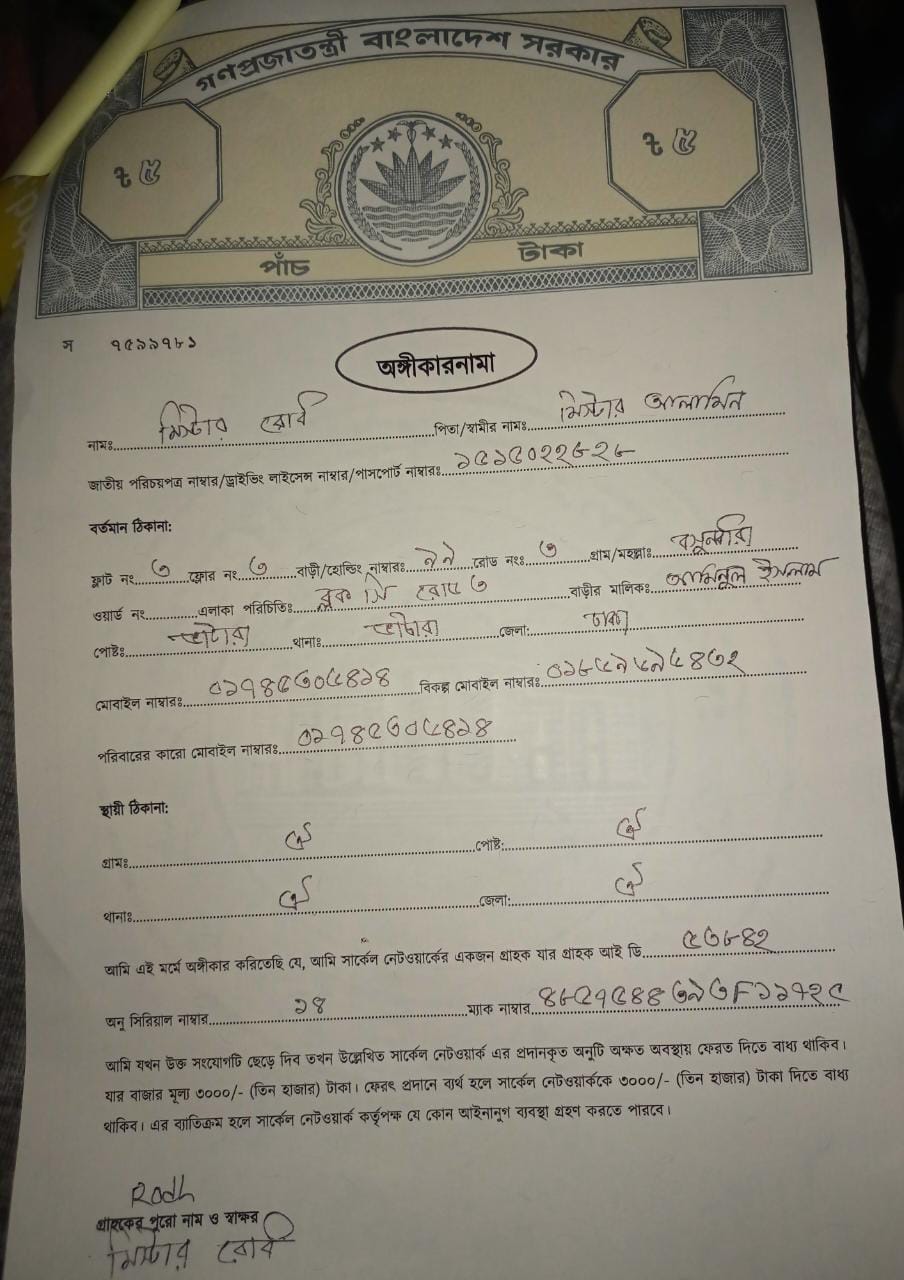 গণপ্রজাতন্ত্রী বাংলাদেশ সরকার
৳ ৫ ৳ ৫
পাঁচ টাকা
স ৭৫৯৯৭৮৯
অঙ্গীকারনামা
নামঃ মিস্টার রোবি পিতা/স্বামীর নামঃ মিস্টার আলামিন
জাতীয় পরিচয়পত্র নাম্বার/ড্রাইভিং লাইসেন্স নাম্বার/পাসপোর্ট নাম্বারঃ ১৫১৫০২২৬২৬
বর্তমান ঠিকানা:
ফ্লাট নং ৩ ফ্লোর নং ৩ বাড়ী/হোল্ডিং নাম্বারঃ রোড নংঃ ৩ গ্রাম/মহল্লাঃ বসুন্ধরা
ওয়ার্ড নং এলাকা পরিচিতিঃ ব্লক সি রোড ৩ বাড়ীর মালিকঃ আমিনুল ইসলাম
পোষ্টঃ ভাটারা থানাঃ ভাটারা জেলা: ঢাকা
মোবাইল নাম্বারঃ ০১৭৪৫৩০৫৪১৪ বিকল্প মোবাইল নাম্বারঃ
পরিবারের কারো মোবাইল নাম্বারঃ ০১৭৪৫৩০৫৪১৪
স্থায়ী ঠিকানা:
গ্রামঃ ঐ পোষ্ট: ঐ
থানাঃ ঐ জেলা: ঐ
আমি এই মর্মে অঙ্গীকার করিতেছি যে, আমি সার্কেল নেটওয়ার্কের একজন গ্রাহক যার গ্রাহক আই ডি ৫৩৬৪২
অনু সিরিয়াল নাম্বার ১৪ ম্যাক নাম্বার
আমি যখন উক্ত সংযোগটি ছেড়ে দিব তখন উল্লেখিত সার্কেল নেটওয়ার্ক এর প্রদানকৃত অনুটি অক্ষত অবস্থায় ফেরত দিতে বাধ্য থাকিব।
যার বাজার মূল্য ৩০০০/- (তিন হাজার) টাকা। ফেরৎ প্রদানে ব্যর্থ হলে সার্কেল নেটওয়ার্ককে ৩০০০/- (তিন হাজার) টাকা দিতে বাধ্য
থাকিব। এর ব্যতিক্রম হলে সার্কেল নেটওয়ার্ক কর্তৃপক্ষ যে কোন আইনানুগ ব্যবস্থা গ্রহণ করতে পারবে।
গ্রাহকের পুরো নাম ও স্বাক্ষর
মিস্টার রোবি